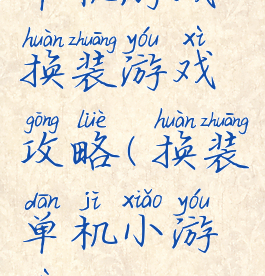 huàn zhuāng yóu xì
换装游戏
gōng lüè huàn zhuāng
攻略(换装
dān jī xiǎo yóu
单机小游